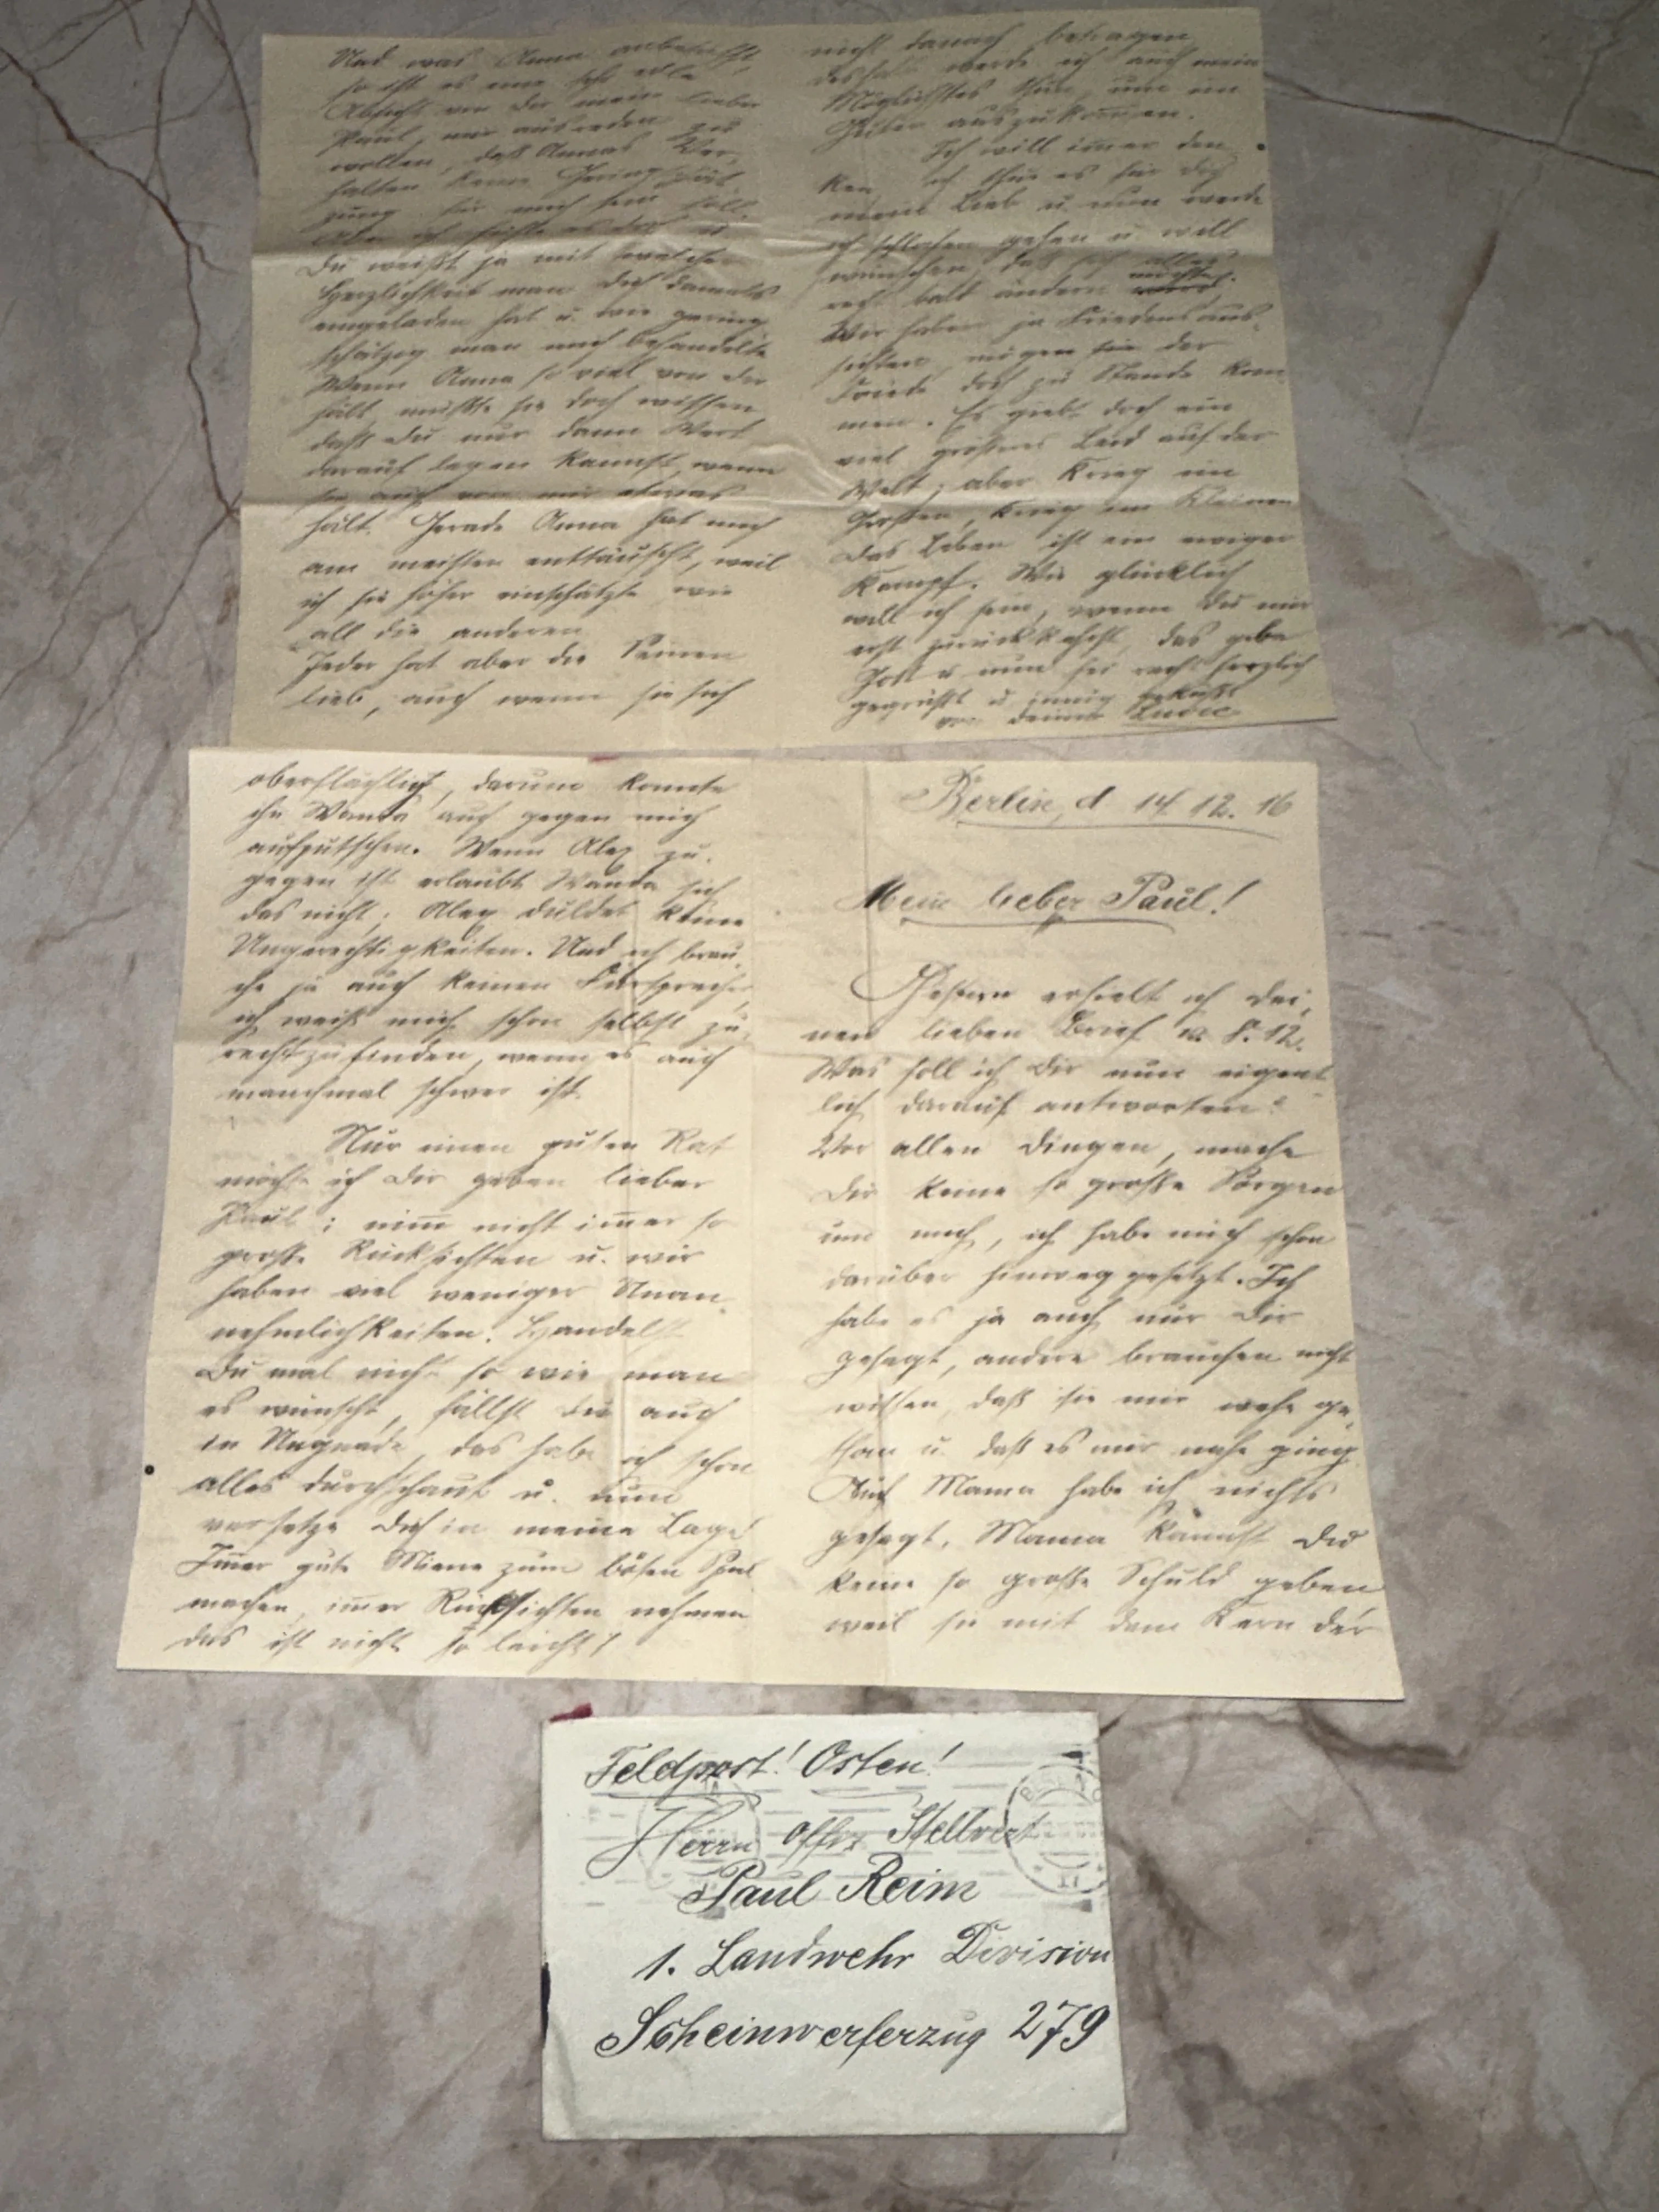 Und was Anna anbetrifft,
so ist es eine sehr edle
Absicht von Dir mein lieber
Paul, mir ausreden zu
wollen, daß Annas Ver-
halten keine Geringschät-
zung für mich sein soll.
Aber ich fühlte es doch u.
Du weißt ja mit welcher
Herzlichkeit man Dich damals
eingeladen hat u. wie gering
schätzig man mich behandelte
Wenn Anna so viel von Dir
hält müßte sie doch wissen
daß Du nur dann Wert
darauf legen kannst, wenn
sie auch von mir etwas
hält. Gerade Anna hat mich
am meisten enttäuscht, weil
ich sie höher einschätzte wie
all die anderen
Jeder hat aber die Seinen
lieb, auch wenn sie sich
nicht danach betragen
deshalb werde ich auch mein
Möglichstes thun, um im
Guten auszukommen.
Ich will immer den-
ken, ich thue es für Dich
mein Lieb u. nun werde
ich schlafen gehen u. will
wünschen, daß sich alles
recht balt ändern möchte.
Wir haben ja Friedensaus-
sichten, mögen der
Friede doch zu Stande kom
men. Es giebt doch ein
viel größeres Leid auf der
Welt; aber Krieg im
Großen, Krieg im Kleinen
Das Leben ist ein ewiger
Kampf. Wie glücklich
will ich sein, wenn Du mir
erst zurückkehrst, das gebe
Gott u nun sei recht herzlich
gegrüßt u innig geküßt
von Deiner
oberflächlich, darum konnte
ihr Wanda auch gegen mich
aufputschen. Wenn Alex zu-
gegen ist erlaubt Wanda sich
das nicht; Alex duldet keine
Ungerechtigkeiten. Und ich brau-
che ja auch keinen Fürsprecher
ich weiß mich schon selbst zu-
rechtzufinden, wenn es auch
manchmal schwer ist
Nur einen guten Rat
möcht ich Dir geben lieber
Paul; nimm nicht immer so
große Rücksichten u. wir
haben viel weniger Unan-
nehmlichkeiten. Handelst
Du mal nicht so wie man
es wünscht, fällst Du auch
in Ungnade, das habe ich schon
alles durchschaut u. nun
versetze Dich in meine Lage!
Immer gute Miene zum bösen Spiel
machen, immer Rücksichten nehmen
das ist nicht so leicht!
Berlin, d 14. 12. 16
Mein lieber Paul!
Gestern erhielt ich Dei-
nen lieben Brief v. 8. 12.
Was soll ich Dir nun eigent
lich darauf antworten?
Vor allen Dingen, mache
Dir keine so große Sorgen
um mich, ich habe mich schon
darüber hinweg gesetzt. Ich
habe es ja auch nur Dir
gesagt, andere brauchen nicht
wissen, daß sie mir wehe ge-
than u. daß es mir nahe ging.
Auch Mama habe ich nichts
gesagt. Mama kannst Du
keine so große Schuld geben
weil sie mit dem Kern der
Feldpost! Osten!
Herrn Offiz Stellvert
Paul Reim
1. Landwehr Division
Scheinwerferzug 279